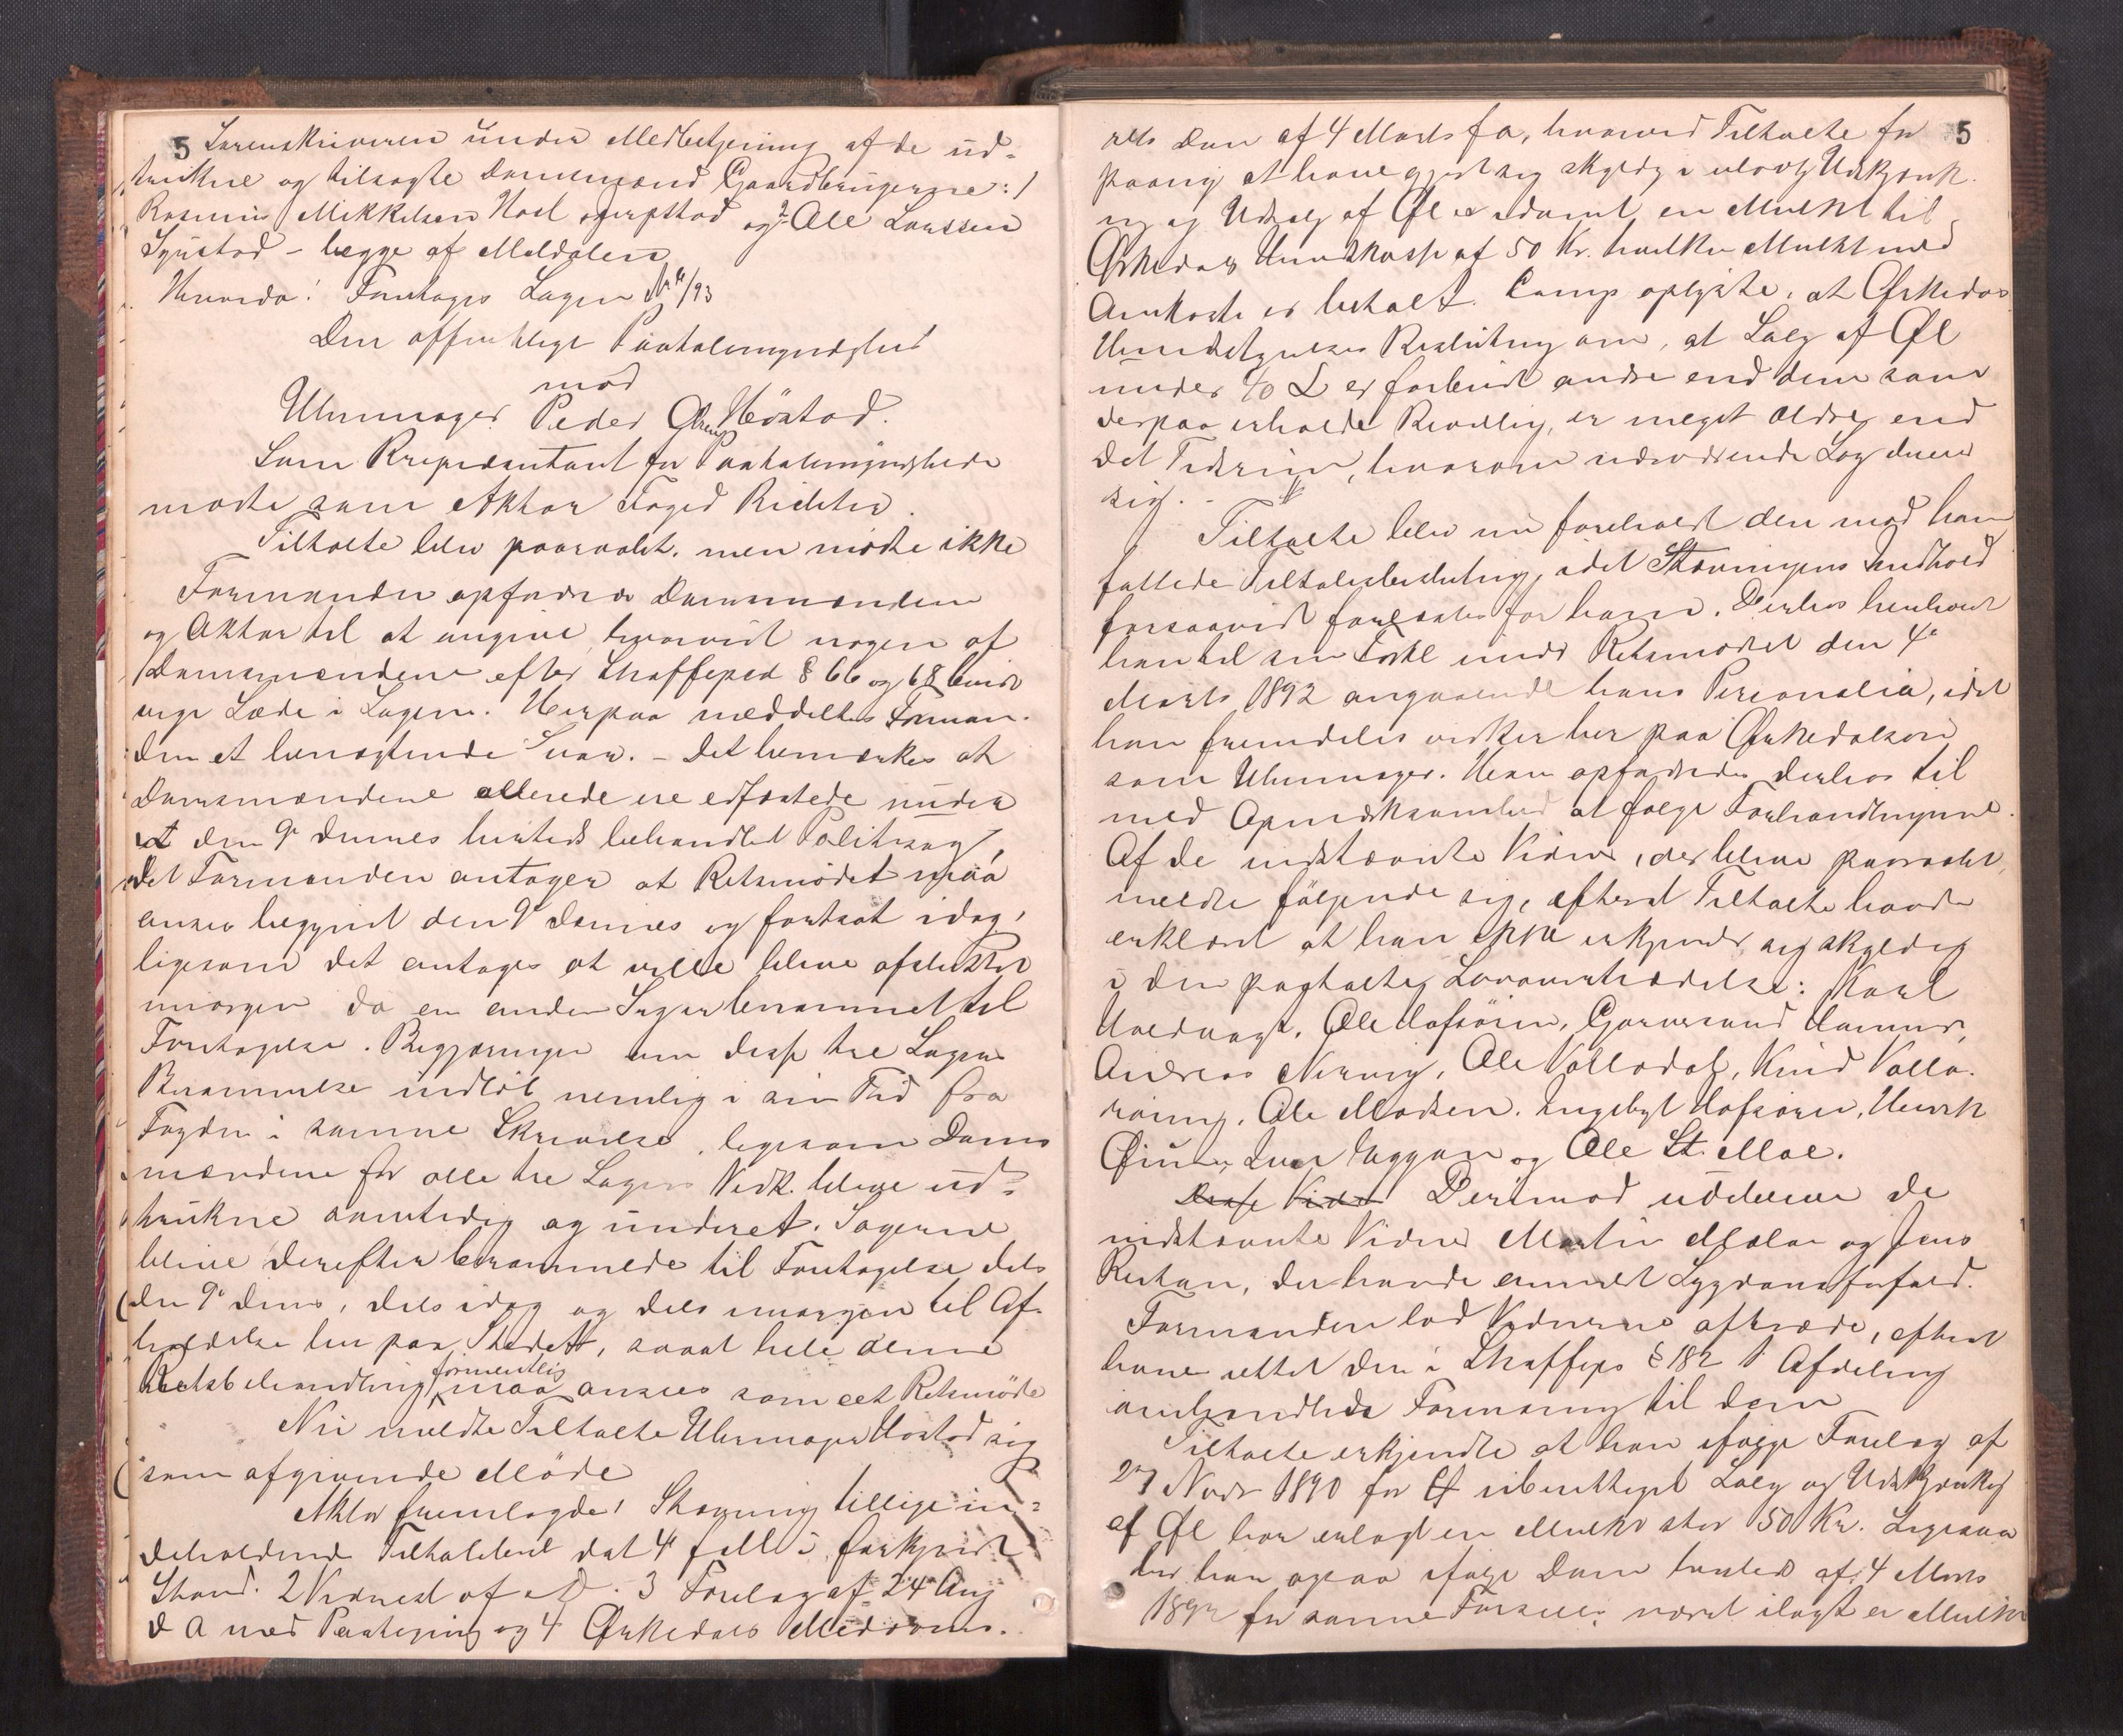 5 Sorenskriveren under Medbetjening af de ud-
trukne og tilsagte Domsmænd Gaardbrugerne: 1
Rasmus Mikkelsen Hoel og 2 Ole Larssen
Syrstad - begge af Meldalen
Hvorda: Foretages Sagen /93
Den offentlige Paatalemyndighed
mod
Uhrmager Peder Høstad.
Som Repræsentant for Paatalemyndigheden
mødte som Aktor Foged Richter.
Tiltalte blev paaraabt, men mødte ikke
Formanden opfordrede Domsmændene
og Aktor til at angive, hvorvidt nogen af
Domsmændene efter Straffeprd § 66 og 68 burde
vige Sæde i Sagen. Herpaa meddeltes Forman-
den et benægtende Svar. - Det bemærkes at
Domsmændene allerede ere edfæstede under
et den 9de dennes hersteds behandlet Politisag,
idet Formanden antager at Retsmødet maa
ansees begyndt den 9de dennes og fortsat idag,
ligesom det antages at ville blive afsluttet
imorgen da en anden Sag er berammet til
Foretagelse. Begjæringer om disse tre Sagers
Berammelse indløb nemlig i sin Tid fra
Fogden i samme Skrivelse, ligesom Doms
mændene for alle tre Sagers Vedk. bleve ud-
trukne samtidig og underet. Sagerne
bleve derefter berammede til Foretagelse dels
den 9de dens, dels idag og dels imorgen til Af-
holdelse her paa Stedet, saaat hele denne
Retsbehandling formentlig maa ansees som eet Retsmøde
Nu meldte Tiltalte Uhrmager Høstad sig
som afgivende Møde
Aktor fremlagde 1 Stævning tillige in-
deholdende Tiltalebesl dat 4de i forkyndt
Stand. 2 Vidnest af 3 Forelæg af 24 Aug
d A med Paategning og 4 Ørkedals Meddoms-
rets Dom af 4 Marts fa, hvorved Tiltalte for 5
paany at have gjort sig skyldig i ulovlig Udskjænk-
ng og Udsalg af Øl er idømt en Mulkt til
Ørkedals Herredskasse af 50 Kr. hvilken Mulkt med
Omkoster er betalt. Comp oplyste, at Ørkedals
Herredstyrelses Beslutning om, at Salg af Øl
under 40 L er forbudt andre end dem som
derpaa erholde Bevilling, er meget ældre end
det Tidsrum, hvorom nærværende Sag dreier
sig. -
Tiltalte blev nu foreholdt den mod ham
fattede Tiltalebeslutning, idet Stævningens Indhold
forsaavidt forelæstes for ham. Derhos henholdt
han til sin Forkl under Retsmødet den 4de
Marts 1892 angaaende hans Personalia, idet
han fremdeles virker her paa Ørkedalsøren
som Uhrmager. Han opfordredes derhos til
med Opmærksomhed at følge Forhandlingerne.
Af de indstævnte Vidner, der bleve paaraabt,
meldte følgende sig, efterat Tiltalte havde
erklæret at han ikke erkjender sig skyldig
i den paatalte Lovovertrædelse: Karl
Ole Hofsøien, Gjøversand Hammer,
Andreas Nerviig, Ole Vollodal, Knud Vollo-
Ole Madsen, Ingebrigt Hofsøren, Henrik
Øium, Iver og Ole St. Moe.
Disse Vidner Derimod udebleve de
indstævnte Vidner Martin og Jens
der havde anmeldt Sygdomsforfald.
Formanden lod Vidnerne aftræde, efterat
have rettet den i Straffeprs § 182 1 Afdeling
omhandlede Formaning til dem
Tiltalte erkjendte at han ifølge Forelæg af
27 Novbr 1890 for uberettiget Salg og Udskjænkng
af Øl har erlagt en Mulkt stor 50 Kr. Ligesaa
har han ogsaa ifølge Dom hersteds af 4 Marts
1892 for samme Forseelse været ilagt en Mulkt